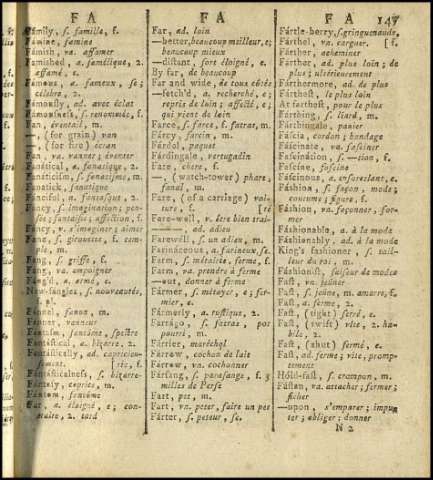 F A
F A
F A
147
Fámily, s. famille, f.
Fámine, famine
Famish, va. affamer
Famished, a. famélique, 2.
affamé, e.
Fámous, a. fameux, se;
célébre, 2.
Fámously, ad. avec éclat
Fámousness, s. renommée, f.
Fan, éventail, m.
—, (for grain) van
—, (for fire) écran
Fan, va. vanner; éventer
Fanátical, a. fanatique, 2.
Fanáticism, s. fanatisme, m.
Fanatick, fanatique
Fánciful, a. fantasque, 2.
Fancy, s. imagination; pen-
sée; fantaisie; affection, f.
Fancy, v. s'imaginer; aimer
Fane, s. girouette, f. tem-
ple, m.
Fang, s. griffe, f.
Fang, va. empoigner
Fánged, a. armé, e.
New-fangles, s. nouveautés,
f. pl.
Fannel, fanon, m.
Fanner, vanneur
Fantasm, fantôme, spectre
Fantástical, a. bizarre, 2.
Fantástically, ad. capricieu-
sement
[rie, f.
Fantásticalness, s. bizarre-
Fántasy, caprice, m.
Fántom, fantôme
Far, a. éloigné, e; con-
traire, 2. tard
Far, ad. loin
—better, beaucoup meilleur, e;
beaucoup mieux
—distant, fort éloigné, e.
By far, de beaucoup
Far and wide, de tous côtés
—fetch'd, a. recherché, e;
repris de loin; affecté, e;
qui vient de loin
Farce, s. farce, f. fatras, m.
Fárcy, farcin, m.
Fárdel, paquet
Fárdingale, vertugadin
Fare, chere, f.
—, (watch-tower) phare;
fanal, m.
Fare, (of a carriage) voi-
ture, f.
[té
Fare-well, v. être bien trai-
—— ad. adieu
Farewéll, s. un adieu, m.
Farináceous, a. farineux, se.
Farm, s. métairie, ferme, f.
Farm, va. prendre à ferme
—out, donner à ferme
Fármer, s. métayer, e; fer-
mier, e.
Fármerly, a. rustique, 2.
Farrágo, s. fatras, pot
pourri, m.
Fárrier, maréchal
Fárrow, cochon de lait
Farrow, va. cochonner
Fársang, s. parasange, f. 3
milles de Perse
Fart, pet, m.
Fart, vn. peter, faire un pet
Fárter, s. peteur, se.
Fártle-berry, s. gringuenaude,
Fárthel, va. carguer.
[f.
Fárther, acheminer
Fárther, ad. plus loin; de
plus; ultérieurement
Fárthermore, ad. de plus
Fárthest, le plus loin
At farthest, pour le plus
Fárthing, s. liard, m.
Fárthingale, panier
Fáscia, cordon; bandage
Fáscinate, va. fasciner
Fascinátion, s. —tion, f.
Fascine, fascine
Fáscinous, a. ensorcelant, e.
Fáshion, s. façon, mode;
coutume; figure, f.
Fáshion, va. façonner, for-
mer
Fáshionable, a. à la mode
Fáshionably, ad. à la mode
King's fashioner, s. tail-
leur du roi; m.
Fáshionist, faiseur de modes
Fast, va. jeûner
Fast, s. jeûne, m. amarre, f.
Fast, a. ferme, 2.
Fast, (tight) serré, e.
Fast, (swift) vîte, 2. ha-
bile, 2.
Fast, (shut) fermé, e.
Fast, ad. ferme; vîte; promp-
tement
Hóld-fast, s. crampon, m.
Fásten, va. attacher; fermer;
ficher
—upon, s'emparer; impu-
ter; obliger; donner
N 2